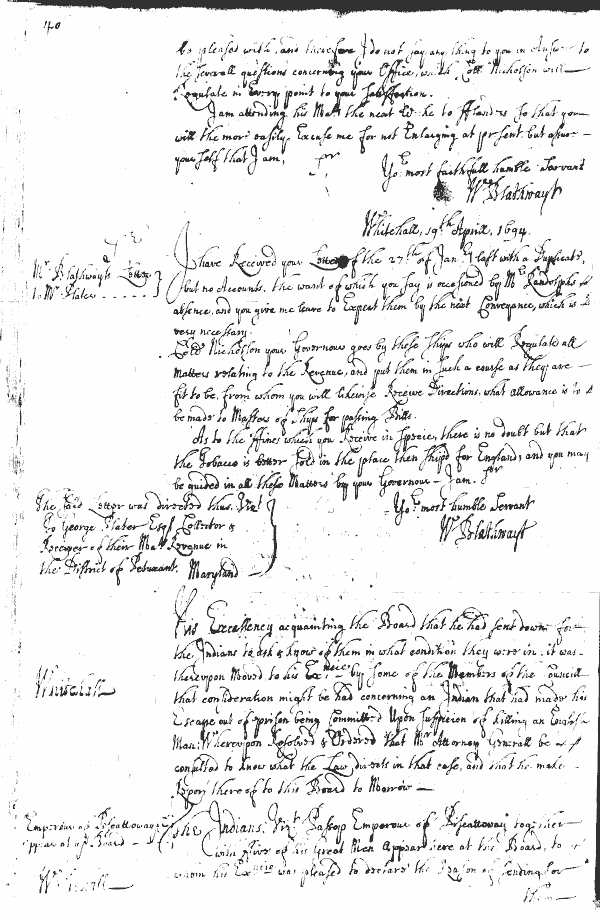 40
be pleased with, and therefore I do not say any thing to you in Answr to
the severall questions concerning your Office, which Collo Nicholson will
Regulate in Every point to your Satisfaction.
I am attending his Matie the next to fflandrs so that you
will the more easily Excuse me for not Enlarging at prsent but assure
your self that I am, Sr
Yor most faithfull humble Servant
Wm Blathwayt
Whitehall, 19th Aprill, 1694.
Mr Blathwayts Letter
to Mr Plater
I have Received your Letter of the 27th of Janry last with a Duplicate,
but no Accounts, the want of which you say is occasioned by Mr Randolphs
absence, and you give me leave to Expect them by the next Conveyance, which is
very necessary.
Collo Nicholson your Governour goes by these Ships who will Regulate all
matters relating to the Revenue, and put them in such a course as they are
fit to be, from whom you will likewise Receive Directions, what allowance is to
be made to Masters of Ships for passing Bills.
As to the ffines which you Receive in Specie, there is no doubt but that
the Tobacco is better sold in the place then shipd for England, and you may
be guided in all these Matters by your Governour I am. Sr
Yor most humble Servant
Wm Blathwayt
The said Letter was directed thus, Vizt
To George Plater Esqr Collector &
Receiver of their Maties Revenue in
the District of Potuxant. Maryland
His Excellency acquainting the Board that he had sent down for
the Indians to ask & know of them in what condition they were in, it was
thereupon Moved to his Excncie by some of the Members of the Councill
that consideration might be had concerning an Indian that had made his
Escape out of prison being Committed Upon suspicion of killing an English
Man; Whereupon Resolved & Ordered that Mr Attorney Generall be
consulted to know what the Law directs in that case, and that he make
Report thereof to this Board to Morrow
Whitehall
Emperour of Piscattoway
appear at ye Board
The Indians, Vizt Emperour of Piscattoway together
with five of his Great Men Appear here at the Board, to
whom his Excncie was pleased to declare the Reason of sending for
them